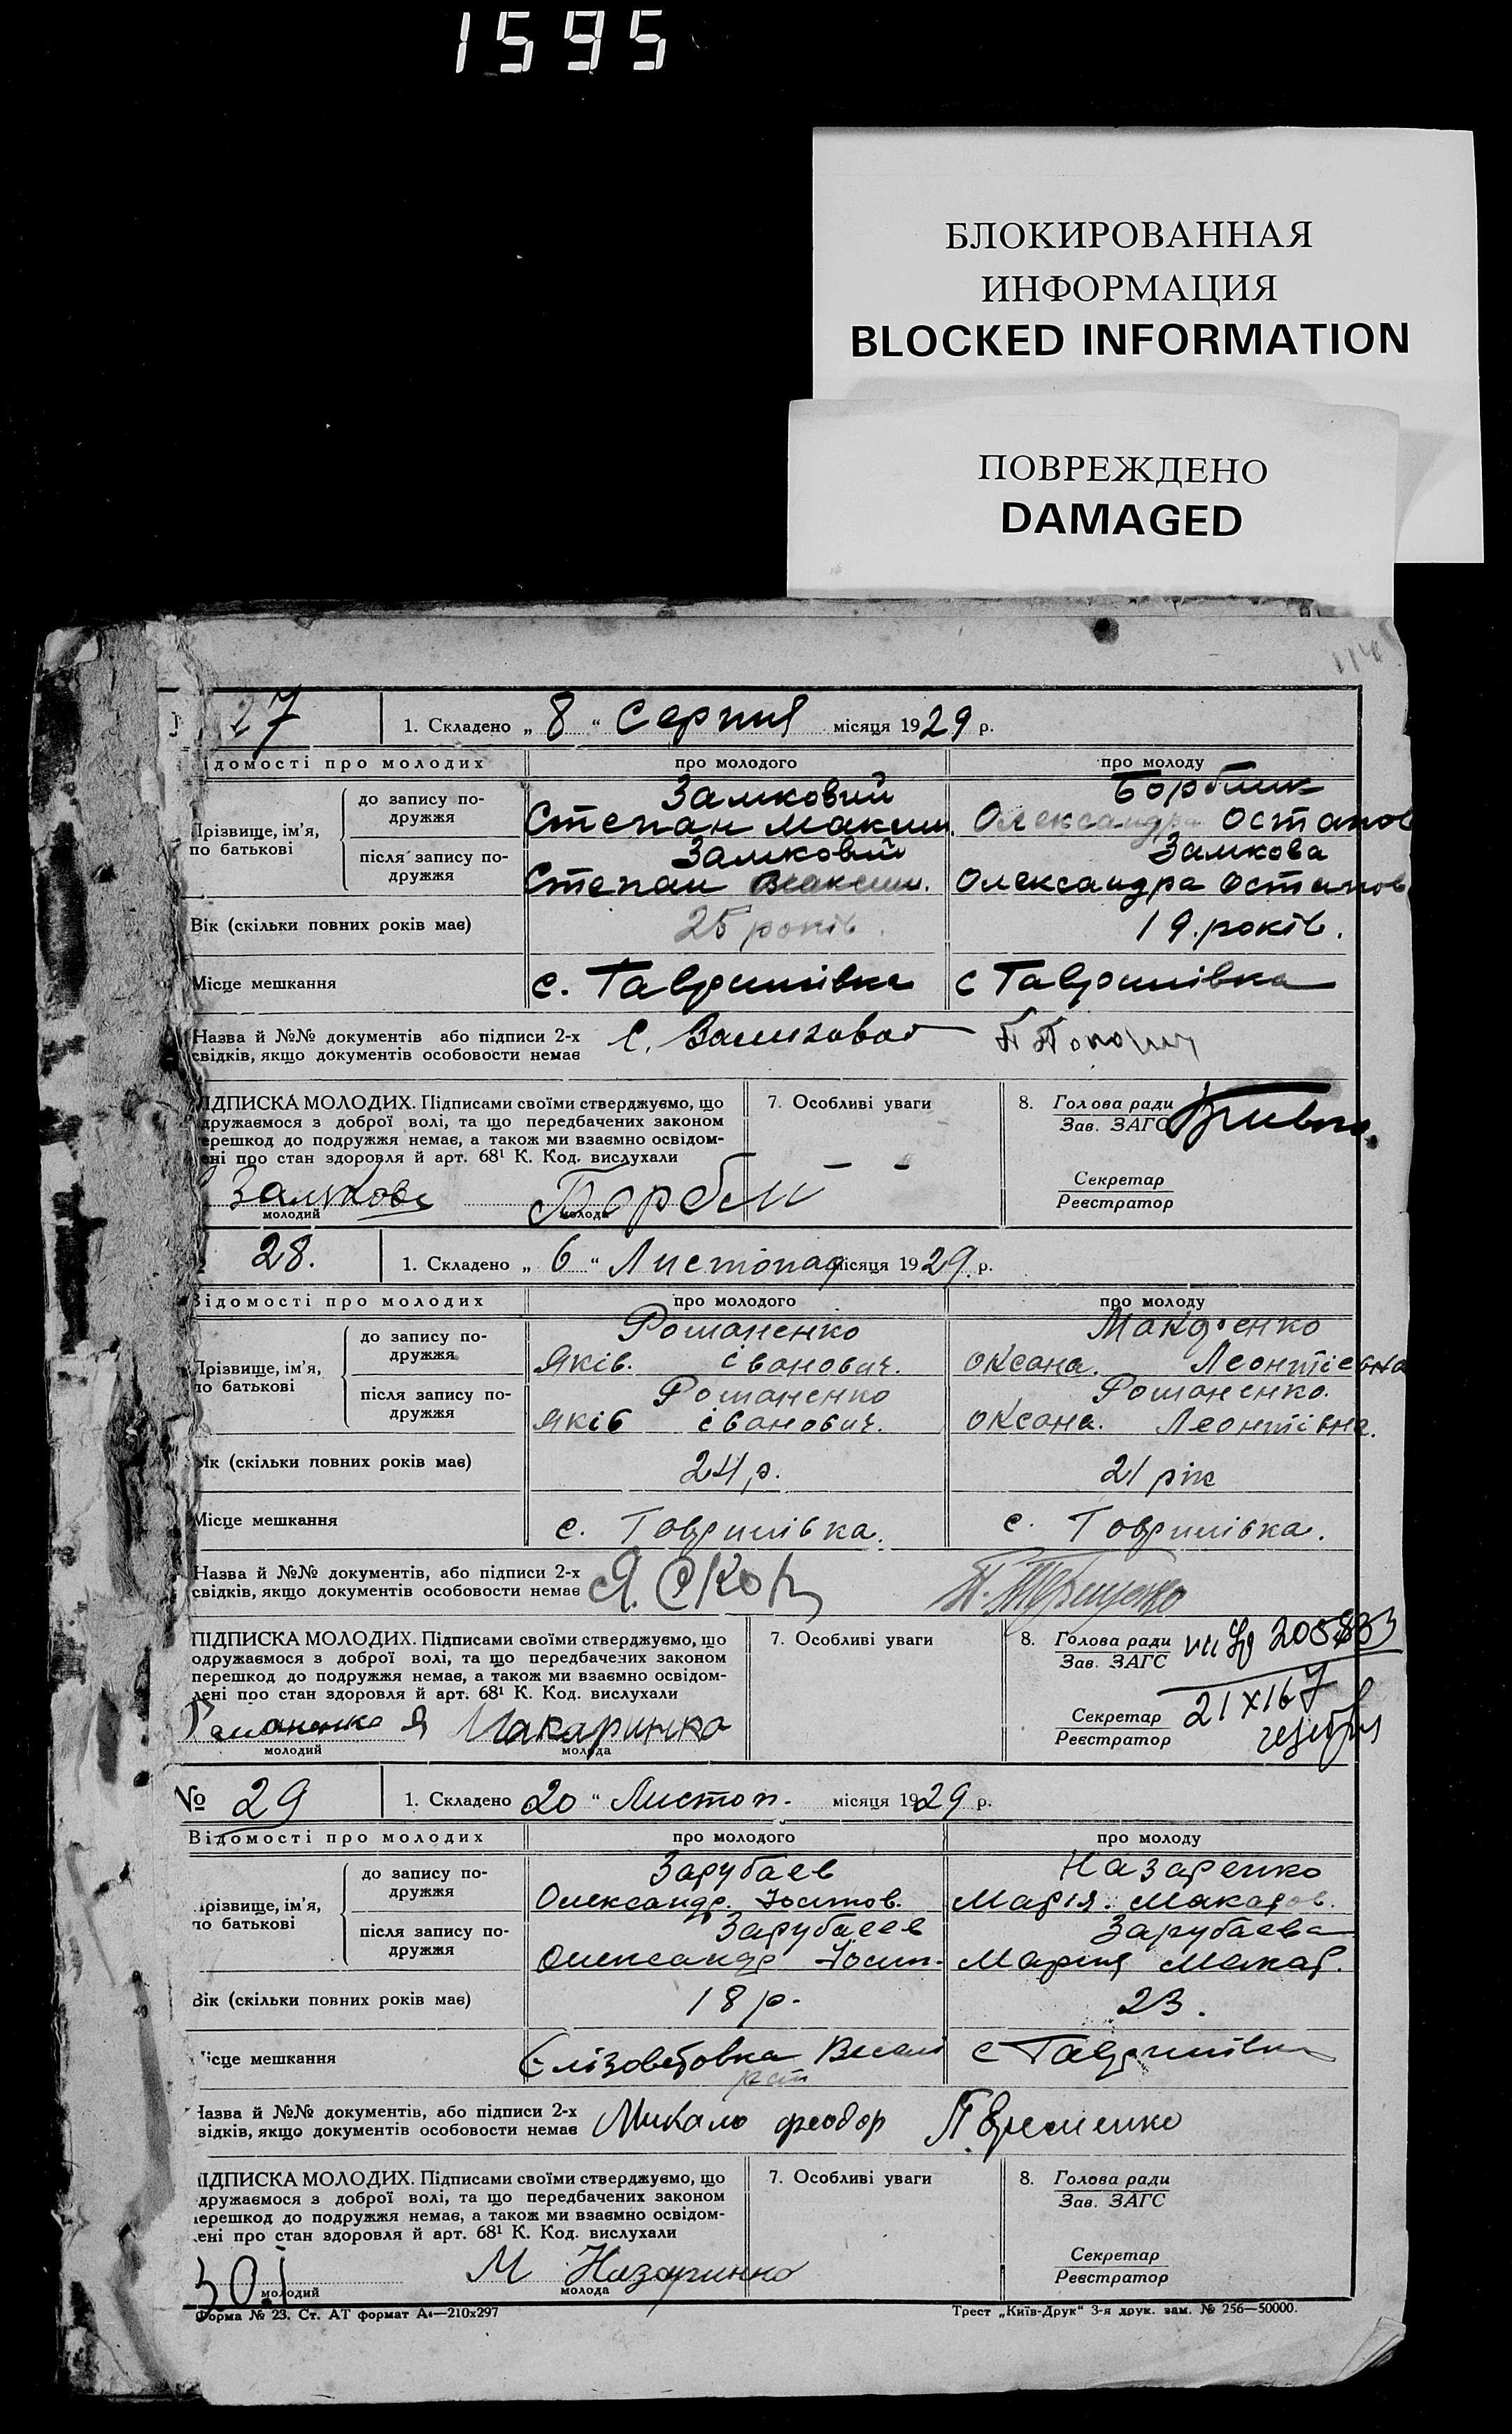 1595
БЛОКИРОВАННАЯ
ИНФОРМАЦИЯ
BLOCKED INFORMATION
ПОВРЕЖДЕНО
DAMAGED
114
27 1. Складено „ 8 “ Серпня місяця 1929 р.
ідомості про молодих про молодого про молоду
Прізвище, ім’я, по батькові
до запису подружжя Замковий
Степан Максим. Олександра Остапов
після запису по-дружжя Замковий Замкова
Степан Максим. Олександра Остапов
Вік (скільки повних років має) 25 років. 19. років.
Місце мешкання с. Гаврилівка с Гаврилівка
Назва й №№ документів або підписи 2-х
свідків, якщо документів особовости немає
ІДПИСКА МОЛОДИХ. Підписами своїми стверджуємо, що 7. Особливі уваги 8. Голова ради
дружаємося з доброї волі, та що передбачених законом Зав. ЗАГС
ерешкод до подружжя немає, а також ми взаємно освідом-
ені про стан здоровля й арт. 68¹ К. Код. вислухали
Секретар
Реєстратор
молодий молода
28. 1. Складено „ 6 “ Листопад місяця 1929. р.
Відомості про молодих про молодого про молоду
до запису по-дружжя Романенко
Прізвище, ім’я, Яків. Іванович. Оксана. Леонтієвна
по батькові
після запису по-дружжя Романенко Романенко.
Яків Іванович. Оксана. Леонтівна.
Вік (скільки повних років має) 24 р. 21 рік
Місце мешкання с. Гаврилівка. с. Гаврилівка.
Назва й №№ документів, або підписи 2-х
свідків, якщо документів особовости немає
ПІДПИСКА МОЛОДИХ. Підписами своїми стверджуємо, що 7. Особливі уваги 8. Голова ради
одружаємося з доброї волі, та що передбачених законом Зав. ЗАГС
перешкод до подружжя немає, а також ми взаємно освідом-
лені про стан здоровля й арт. 68¹ К. Код. вислухали
Секретар
Реєстратор
Романенко Я Макаринко
молодий молода
№ 29 1. Складено 20 “ Листоп. місяця 1929 р.
Відомості про молодих про молодого про молоду
до запису по-дружжя Зарубаев Назаренко
Прізвище, ім’я, Олександр. Марія. Макаров.
по батькові
після запису по-дружжя Зарубаева
Олександр Мария Макар.
Вік (скільки повних років має) 18 р. 23.
Місце мешкання Єлізоветовка с Гаврилівка
Назва й №№ документів, або підписи 2-х Микало феодор П. Єременко
відків, якщо документів особовости немає
ІДПИСКА МОЛОДИХ. Підписами своїми стверджуємо, що 7. Особливі уваги 8. Голова ради
дружаємося з доброї волі, та що передбачених законом Зав. ЗАГС
ерешкод до подружжя немає, а також ми взаємно освідом-
ені про стан здоровля й арт. 68¹ К. Код. вислухали
Секретар
Реєстратор
М Назаринко
молодий молода
Форма № 23. Ст. АТ формат А₄—210x297 Трест „Київ-Друк“ 3-я друк. зам. № 256—50000.